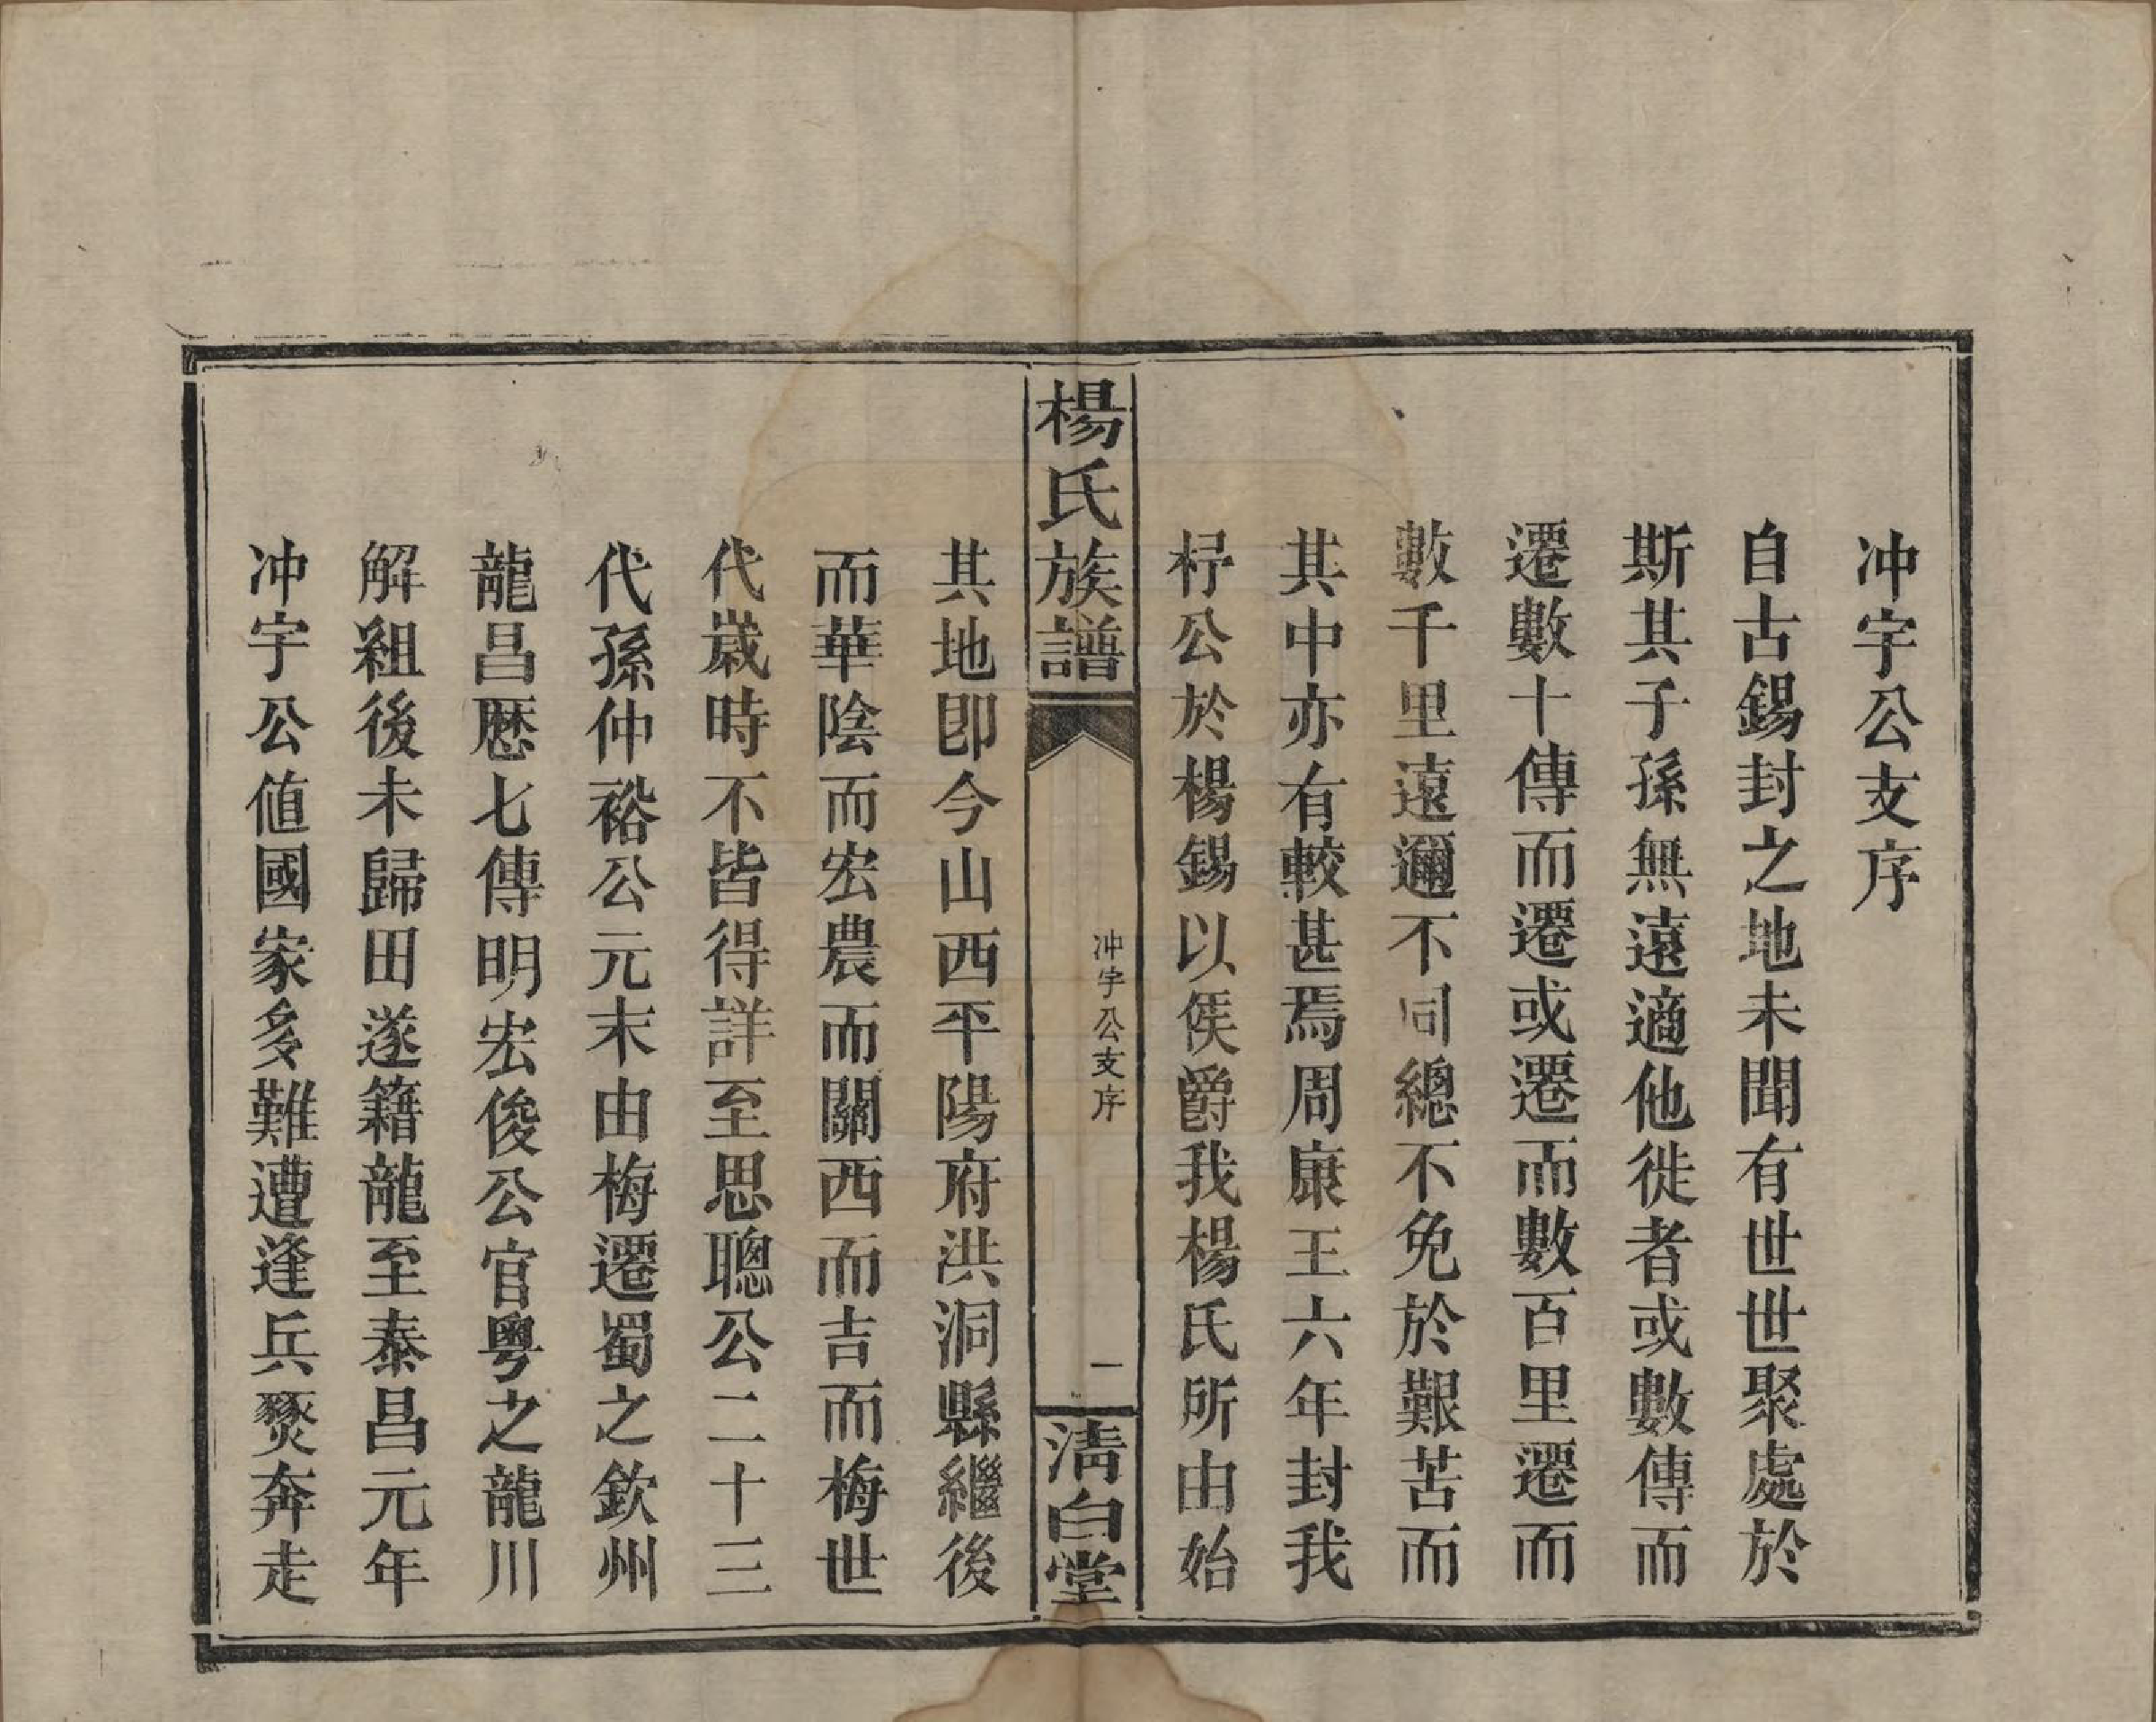 冲宇公支序
自古錫封之地未聞有世世聚處於
斯其子孫無遠適他徙者或數傳而
遷數十傳而遷或遷而數百里遷而
數千里遠邇不同總不免於艱苦而
其中亦有較甚焉周康王六年封我
杼公於楊錫以侯爵我楊氏所由始
楊氏族譜
冲宇公支序
一
清白堂
其地卽今山西平陽府洪洞縣繼後
而華陰而宏農而關西而吉而梅世
代歲時不皆得詳至思聰公二十三
代孫仲裕公元末由梅遷蜀之欽州
龍昌歷七傳明宏俊公官粵之龍川
解組後未歸田遂籍龍至泰昌元年
冲宇公値國家多難遭逢兵燹奔走